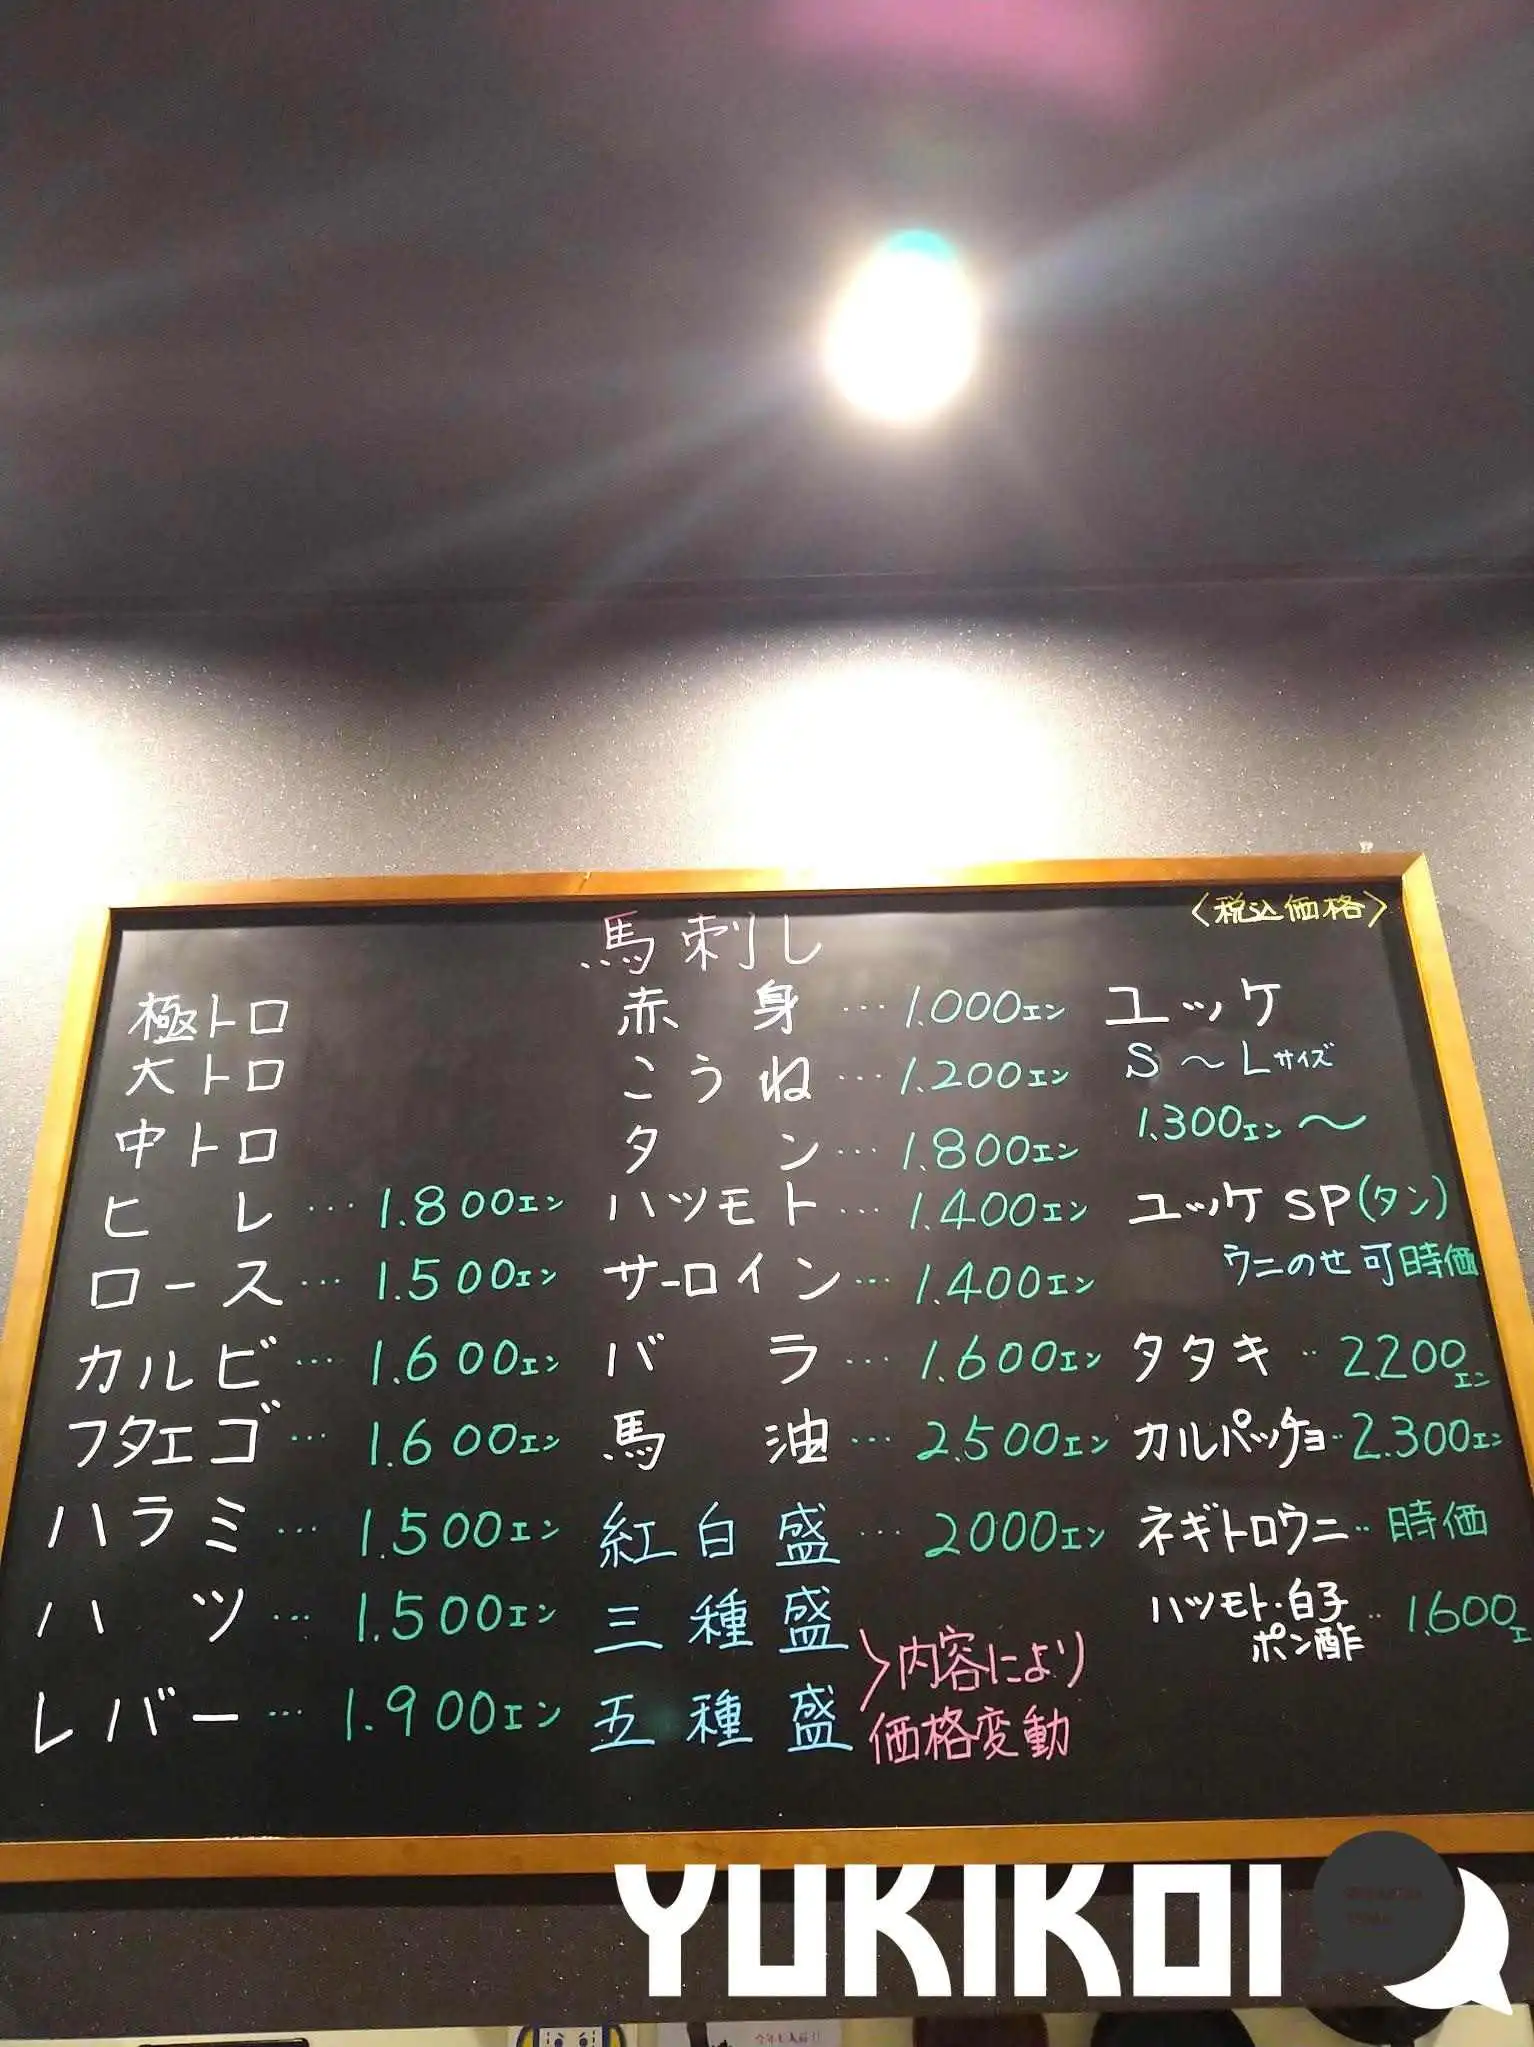 馬刺し
〈税込価格〉
極トロ
大トロ
中トロ
ヒレ … 1.800エン
ロース … 1.500エン
カルビ … 1.600エン
フタエゴ … 1.600エン
ハラミ … 1.500エン
ハツ … 1.500エン
レバー … 1.900エン
赤身 … 1.000エン
こうね … 1.200エン
タン … 1.800エン
ハツモト … 1.400エン
サーロイン … 1.400エン
バラ … 1.600エン
馬油 … 2.500エン
紅白盛 … 2000エン
三種盛
五種盛
内容により
価格変動
ユッケ
S 〜 Lサイズ
1.300エン〜
ユッケ SP(タン)
ウニのせ可時価
タタキ ‥ 2.200エン
カルパッチョ‥2.300エン
ネギトロウニ‥ 時価
ハツモト・白子
ポン酢 ‥ 1.600エ
YUKIKOI